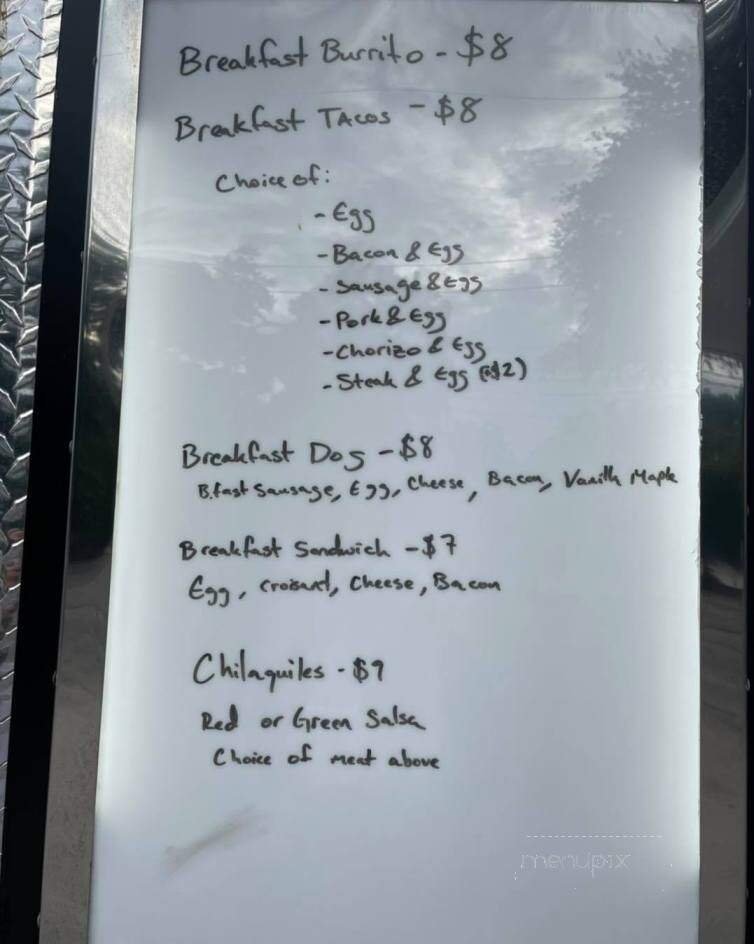 Breakfast Burrito - $8
Breakfast TAcos - $8
Choice of:
- Egg
- Bacon & Egg
- Sausage & Egg
- Pork & Egg
- Chorizo & Egg
- Steak & Egg (+$2)
Breakfast Dog - $8
B.fast Sausage, Egg, Cheese, Bacon, Vanilla Maple
Breakfast Sandwich - $7
Egg, Croisant, Cheese, Bacon
Chilaquiles - $9
Red or Green Salsa
Choice of meat above
menupix